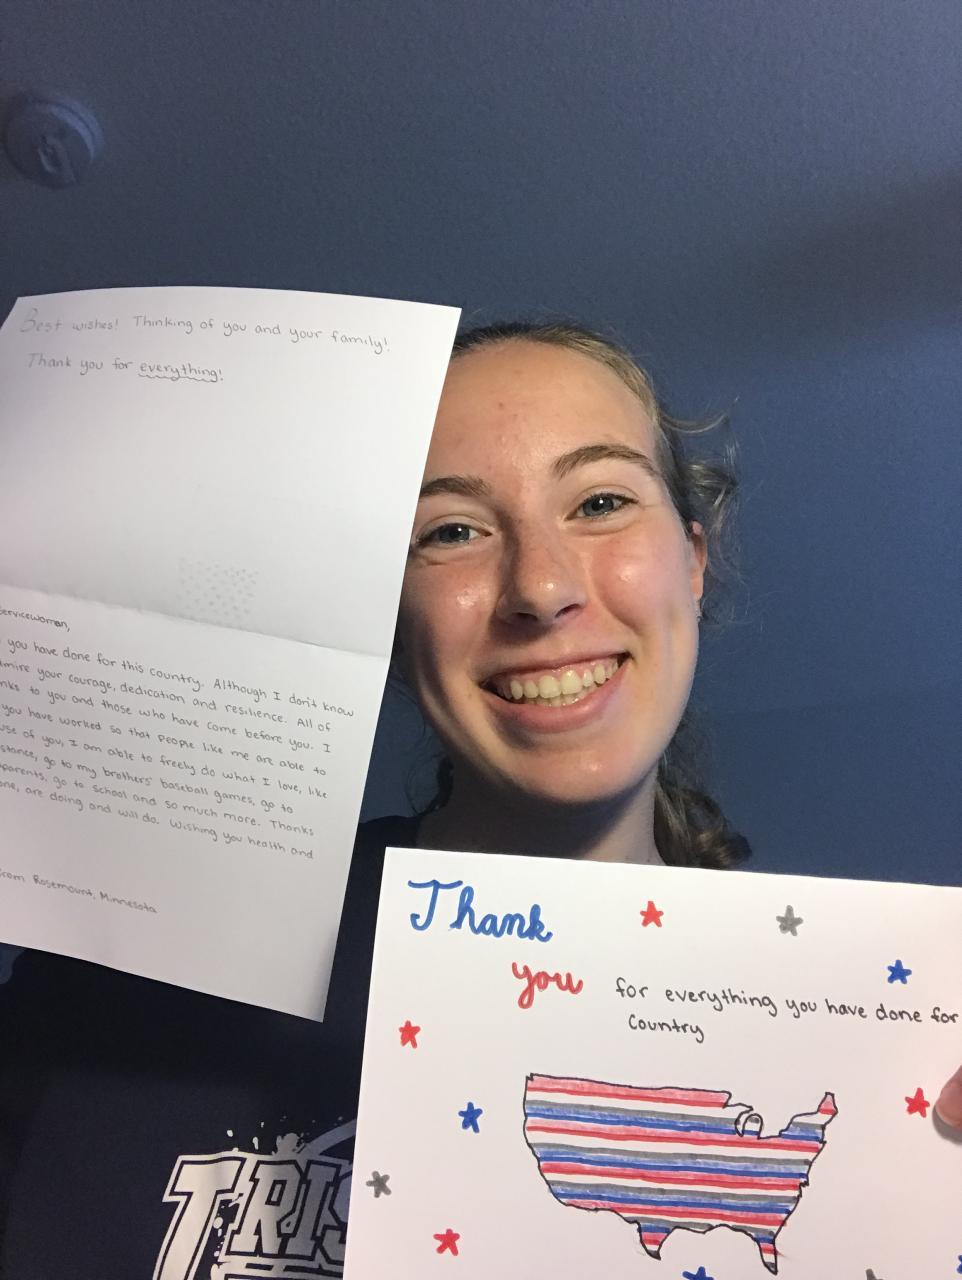 Best wishes! Thinking of you and your family!
Thank you for everything!
servicewoman,
you have done for this country. Although I don't know
mire your courage, dedication and resilience. All of
nks to you and those who have come before you. I
you have worked so that people like me are able to
use of you, I am able to freely do what I love, like
stance, go to my brothers' baseball games, go to
parents, go to school and so much more. Thanks
one, are doing and will do. Wishing you health and
from Rosemount, Minnesota
Thank
you for everything you have done for
Country
TRIS